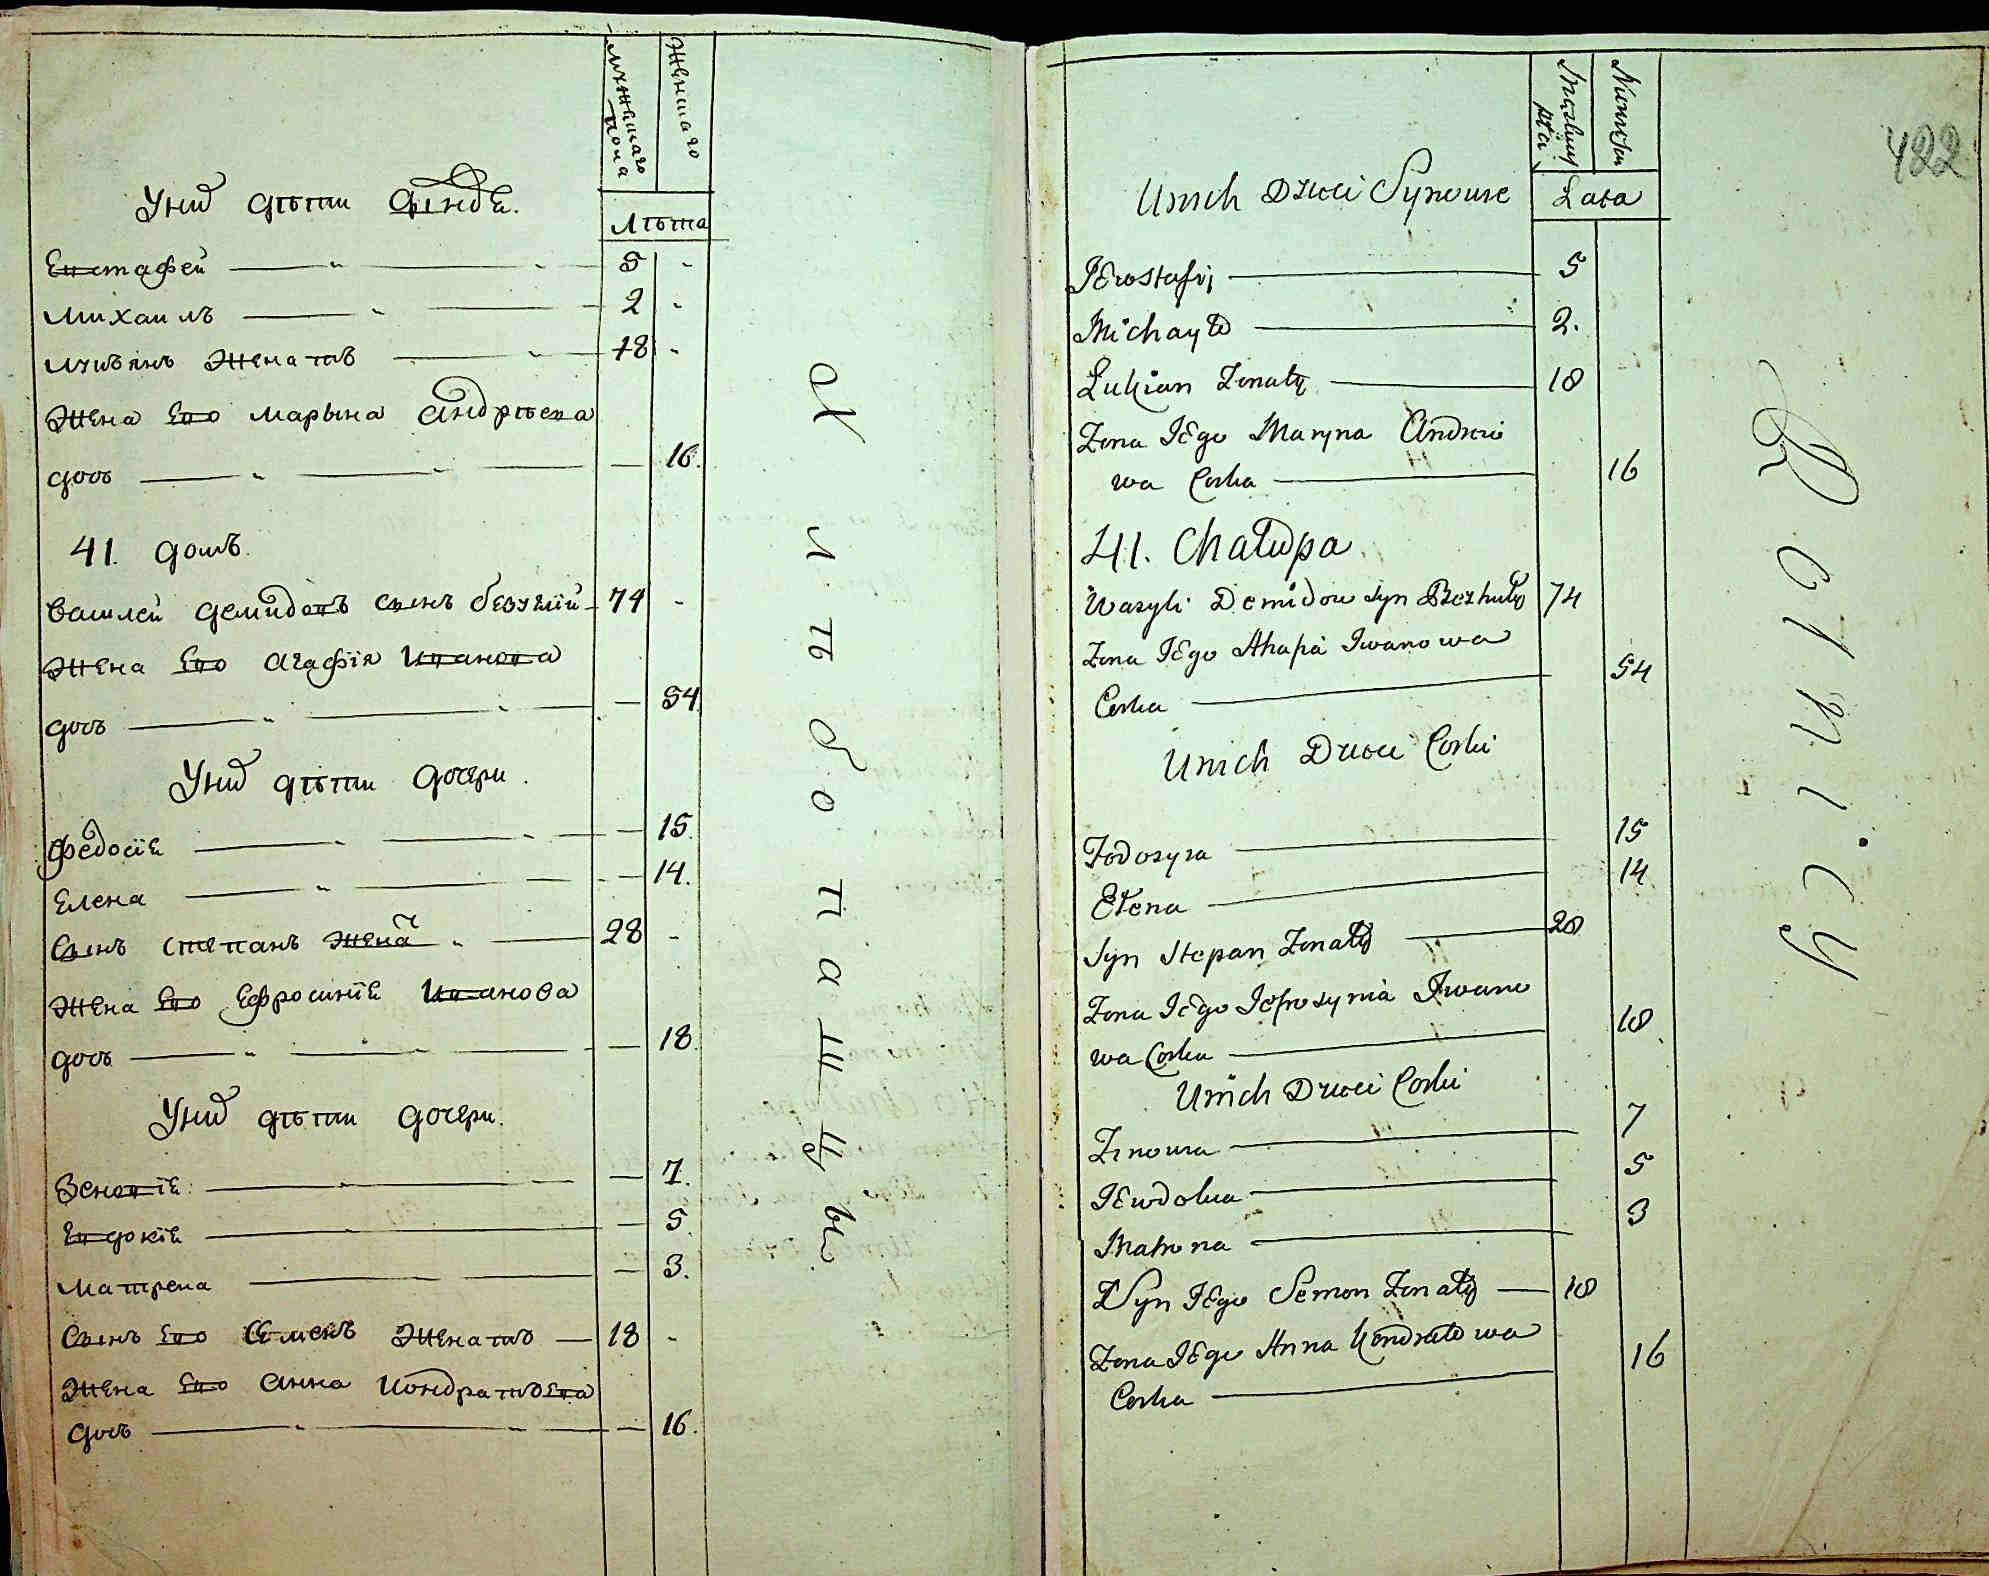 мужескаго пола
женскаго
Лѣта
У них дѣти
Евстафей 5 -
Михаилъ 2 -
Лукьянъ женатъ 18 -
жена Ево Марына Андрѣева
дочь — 16.
41. домъ.
Василей Демидовъ сынъ 74 -
жена Ево Агафія Иванова
дочь — 54.
У них дѣти дочери.
Федосіе — 15.
Елена — 14.
Сынъ Степанъ женат 28 -
жена Ево Ефросиніе Иванова
дочь — 18.
У них дѣти дочери.
Зеновіе — 7.
Евдокіе — 5.
Матрена — 3.
Сынъ Ево Семенъ женатъ — 18 -
жена Ево Анна Кондратьева
дочь — 16.
Хлѣбопашцы
422
Męskiey płci
Niewiescki
Lata
U nich Dzieci Synowie
JEwstafij 5
Michayło 2.
Łukian Żonaty 18
Żona JEgo Maryna Andrie
wa Corka 16
41. Chałupa
Wasyli Demidow Syn 74
Żona JEgo Ahapia Iwanowa
Corka 54
U nich Dzieci Corki
Fodosyia 15
Ełena 14
Syn Stepan Żonaty 28
Żona JEgo Jefrosynia Iwano
wa Corka 18
U nich Dzieci Corki
Zinowia 7
JEwdokia 5
Matrona 3
Syn JEgo Semen Żonaty — 18
Żona JEgo Anna Kondratowa
Corka 16
Rolnicy